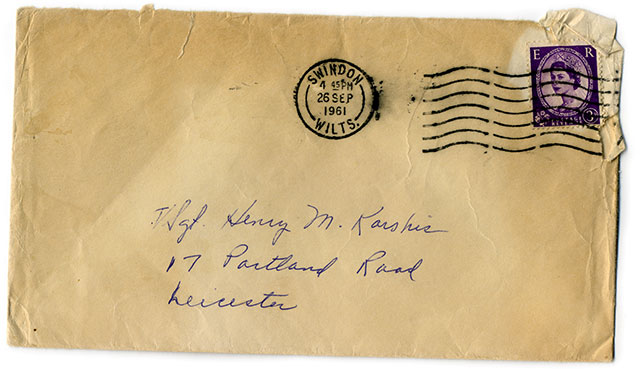 SWINDON
4 45PM
26 SEP
1961
WILTS.
E R
T/Sgt. Henry M. Karshis
17 Portland Road
Leicester